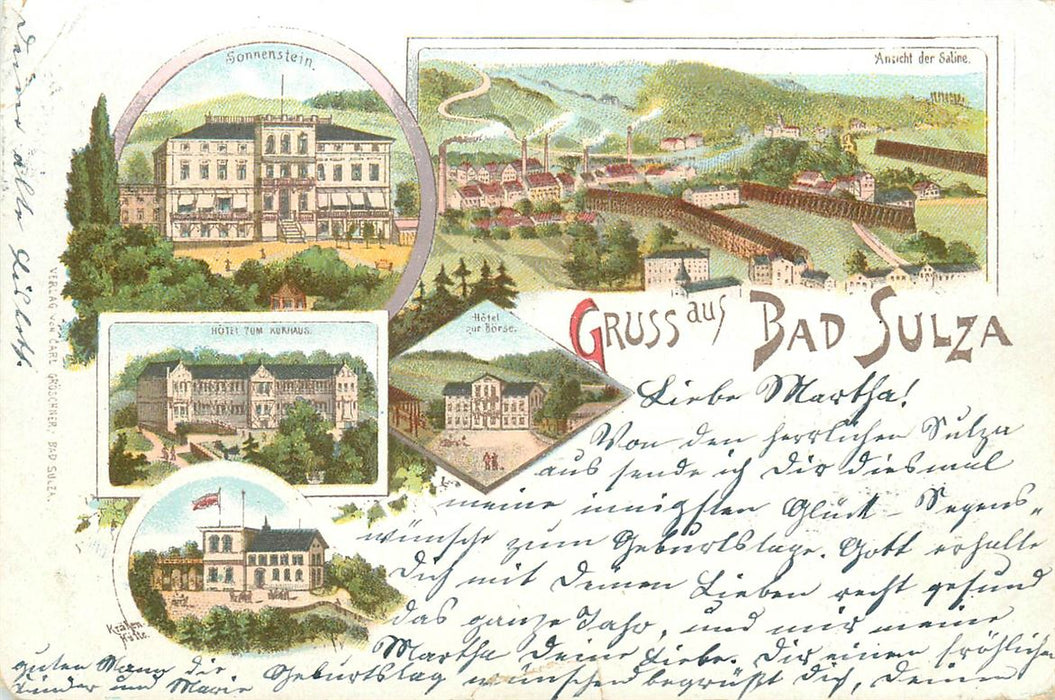 Sonnenstein.
Ansicht der Saline.
HÔTEL ZUM KURHAUS.
Hôtel
zur Börse.
Krähen-
Hütte.
VERLAG VON CARL GRÖSCHNER, BAD SULZA.
GRUSS aus BAD SULZA
Liebe Martha!
Von den herrlichen Sulza
aus sende ich Dir diesmal
meine innigsten Glück- Segens-
wünsche zum Geburtstage. Gott erhalte
Dich mit Deinen Lieben recht gesund
das ganze Jahr, und mir meine
Martha Deine Liebe. Dir einen fröhlichen
Geburtstag wünschen begrüßt Dich, Deinen
guten Mann die
Kinder und Marie
Deine alte